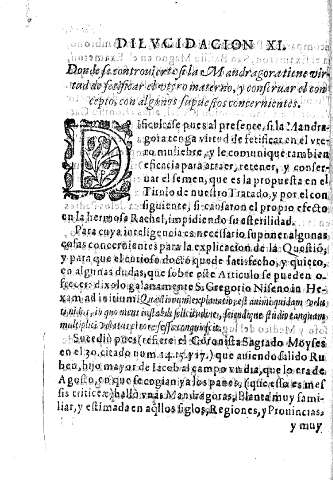 DILVCIDACION XI.
Donde se controvierte si la Mandragora tiene vir-
tud de fetificar el vtero materno, y conservar el con-
cepto, con algunos supuestos concernientes.
Dificultase pues al presente, si la Mandra-
gora tenga virtud de fetificar en el vte-
ro muliebre, y le comunique tambien
eficacia para atraer, retener, y conser-
uar el semen, que es la propuesta en el
Titulo de nuestro Tratado, y por el con
siguiente, si causaron el propio efecto
en la hermosa Rachel, impidiendo su esterilidad.
Para cuya inteligencia es necessario suponer algunas
cosas concernientes para la explicacion de la Questiõ,
y para que el curioso docto quede satisfecho, y quieto,
en algunas dudas, que sobre este Articulo se pueden o-
frecer: dixolo galanamente S. Gregorio Niseno in He-
xam ad initium:
Sucediò pues (refiere el Coronista Sagrado Moyses
en el 30. citado num. 14. 15. y 17.) que auiendo salido Ru-
ben, hijo mayor de Iacob al campo vn dia, que lo era de
Agosto, en que se cogian ya los panes, (que essa es mes
sis triticeæ) hallò vnas Mandragoras, Planta muy fami-
liar, y estimada en aq̃llos siglos, Regiones, y Prouincias,
y muy